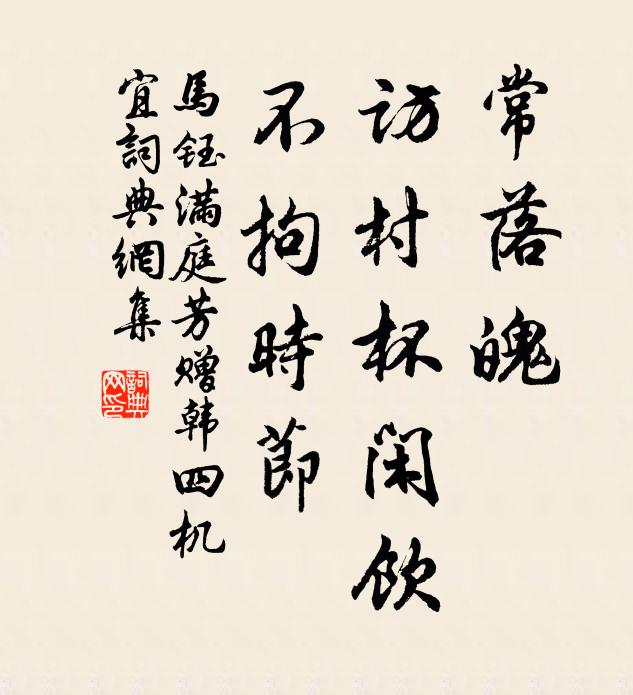 常落魄
访村杯闲饮
不拘時節
馬鈺满庭芳赠韩四机
宜詞典網集
詞典网印